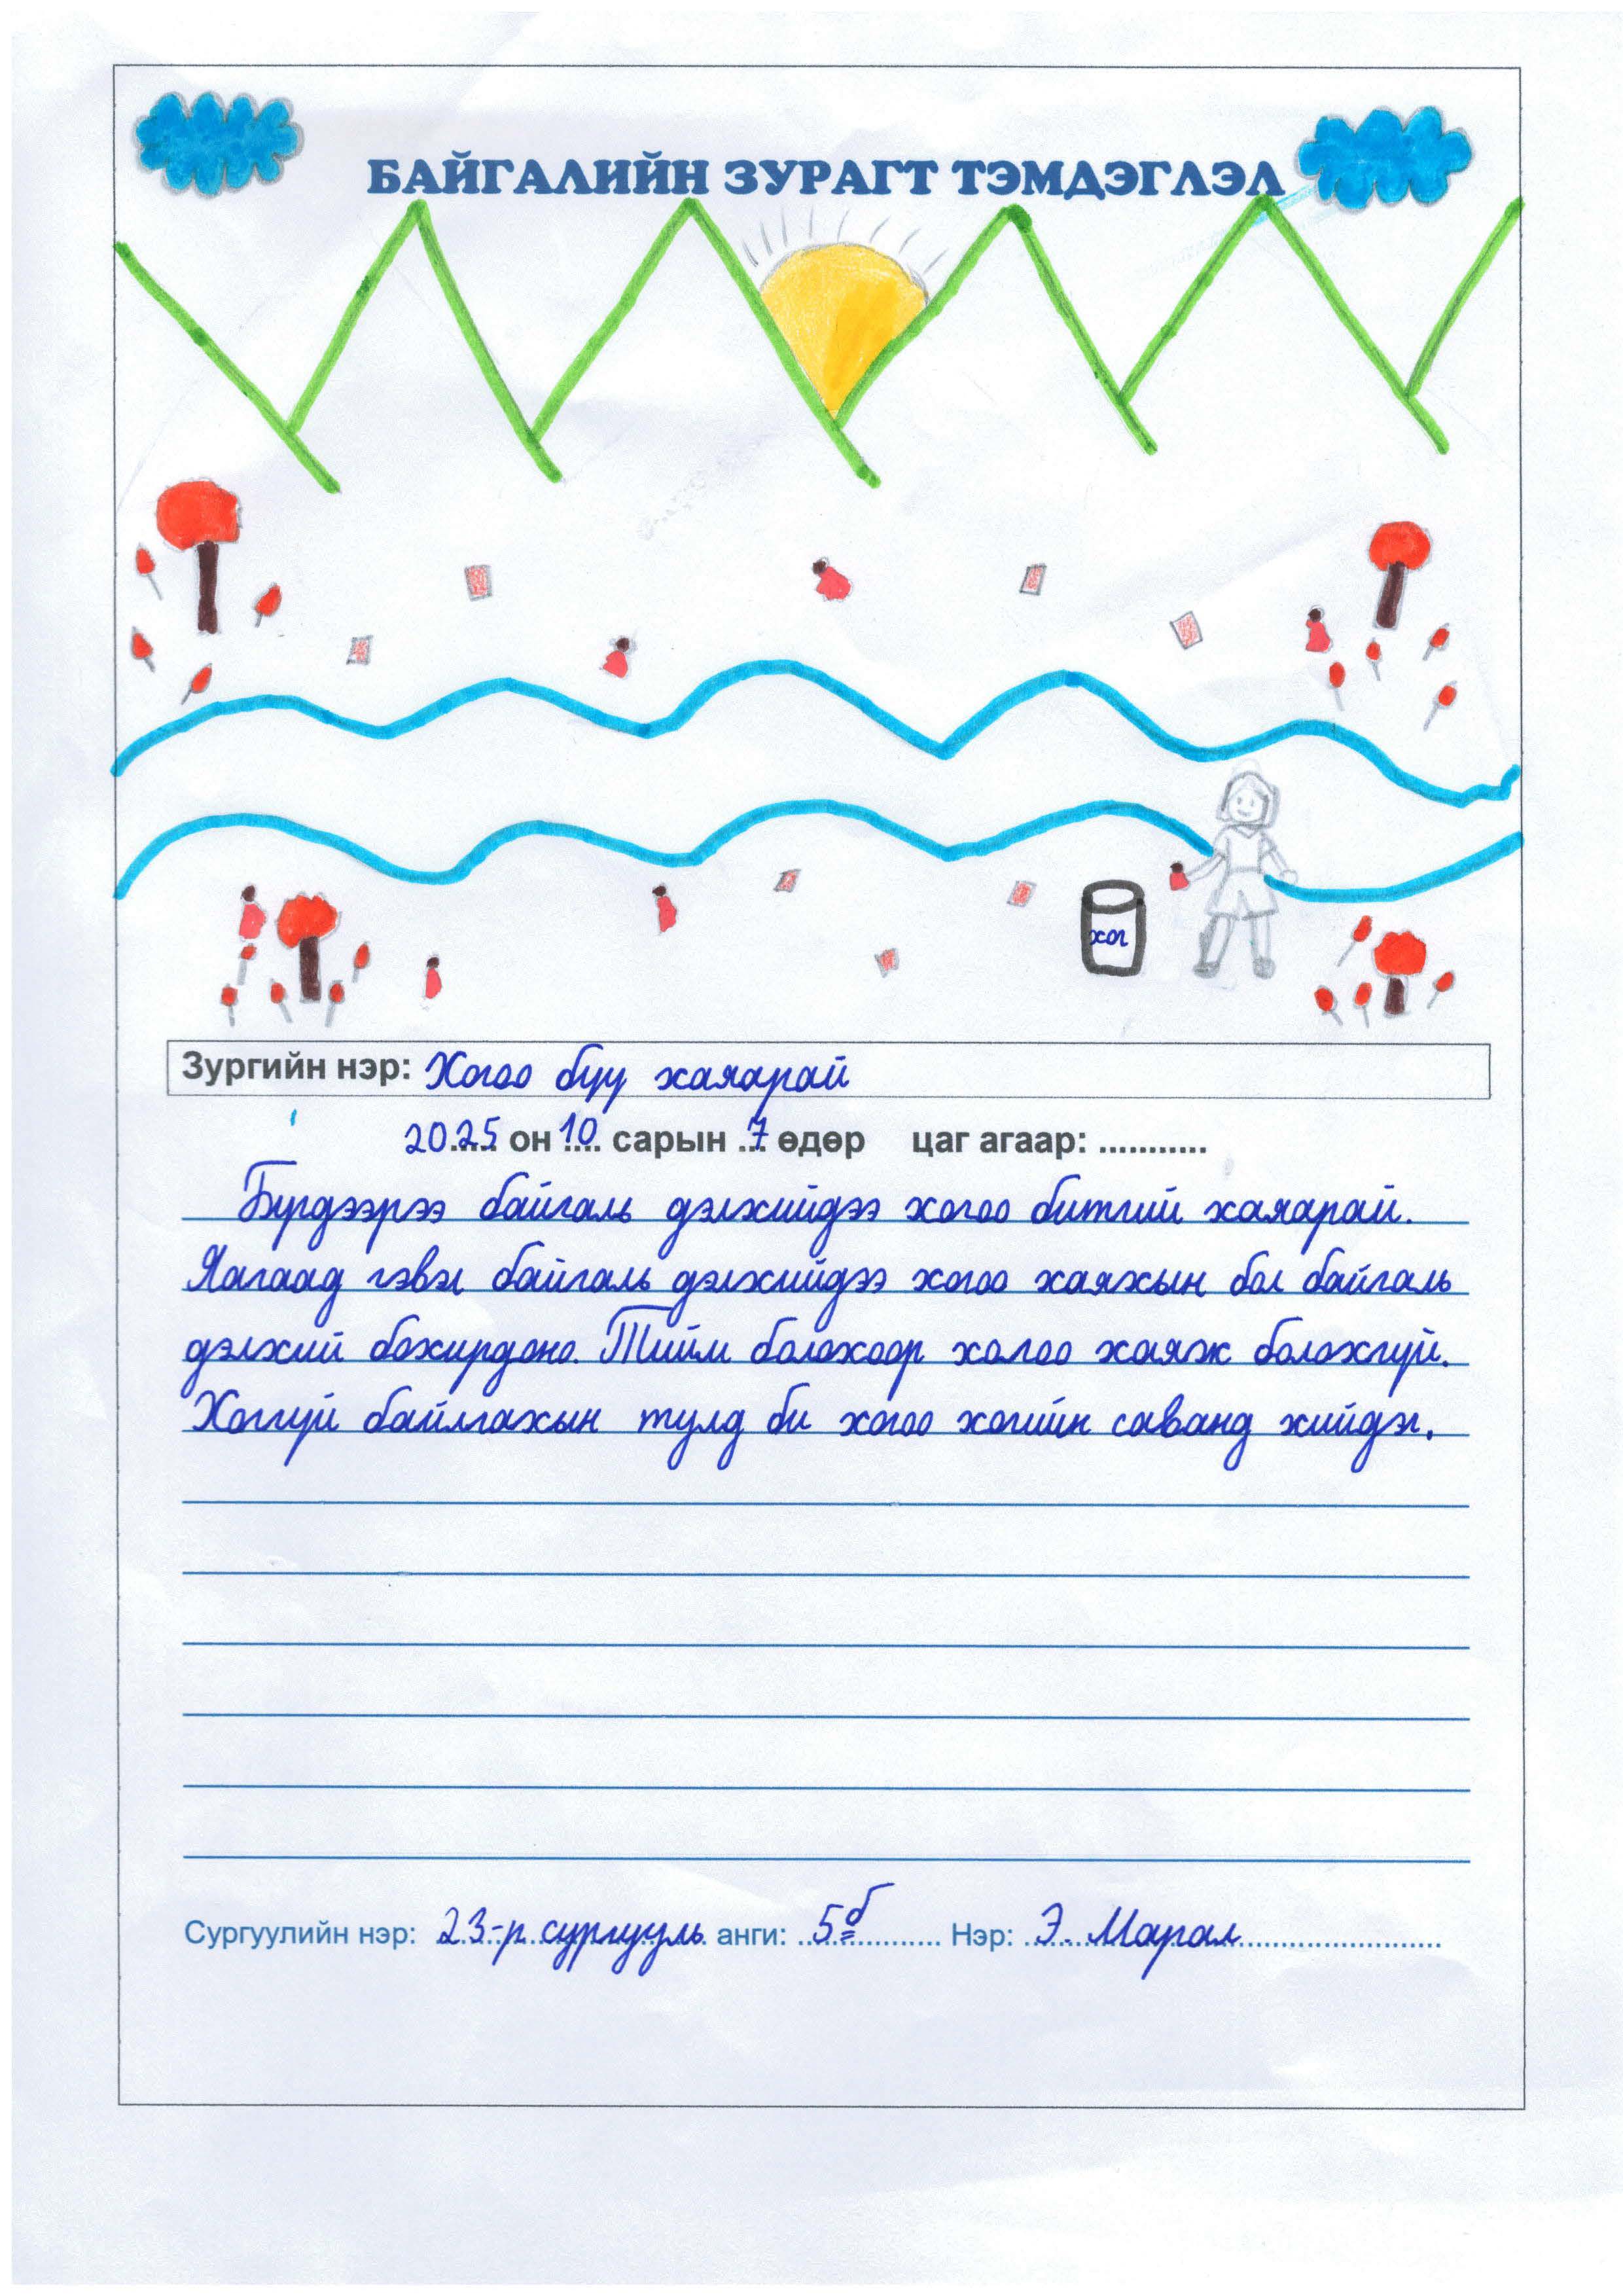 БАЙГАЛИЙН ЗУРАГТ ТЭМДЭГЛЭЛ
хог
Зургийн нэр: Хогоо буу хаяарай
2025 он 10 сарын 7 өдөр цаг агаар: ...........
Бүгдээрээ байгаль дэлхийдээ хогоо битгий хаяарай.
Яагаад гэвэл байгаль дэлхийдээ хогоо хаяхын бол байгаль
дэлхий бохирдоно. Тийм болохоор хогоо хаяж болохгүй.
Хоггүй байлгахын тулд би хогоо хогийн саванд хийдэг.
Сургуулийн нэр: 23-р сургууль анги: 5б Нэр: Э. Марал